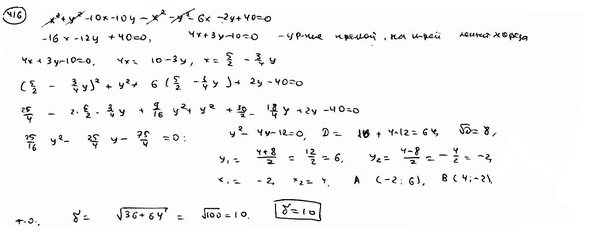 416
x² + y² - 10x - 10y - x² - y² - 6x - 2y + 40 = 0
-16x - 12y + 40 = 0, 4x + 3y - 10 = 0 - ур-ние прямой, на которой лежит хорда
4x + 3y - 10 = 0. 4x = 10 - 3y, x = 5/2 - 3/4 y
(5/2 - 3/4 y)² + y² + 6(5/2 - 3/4 y) + 2y - 40 = 0
25/4 - 2 · 5/2 · 3/4 y + 9/16 y² + y² + 30/2 - 18/4 y + 2y - 40 = 0
25/16 y² - 25/4 y - 75/4 = 0: y² - 4y - 12 = 0, D = 16 + 4·12 = 64, √D = 8,
y₁ = (4+8)/2 = 12/2 = 6. y₂ = (4-8)/2 = -4/2 = -2,
x₁ = -2, x₂ = 4. A (-2; 6), B (4; -2).
т.о., γ = √(36+64) = √100 = 10. γ = 10